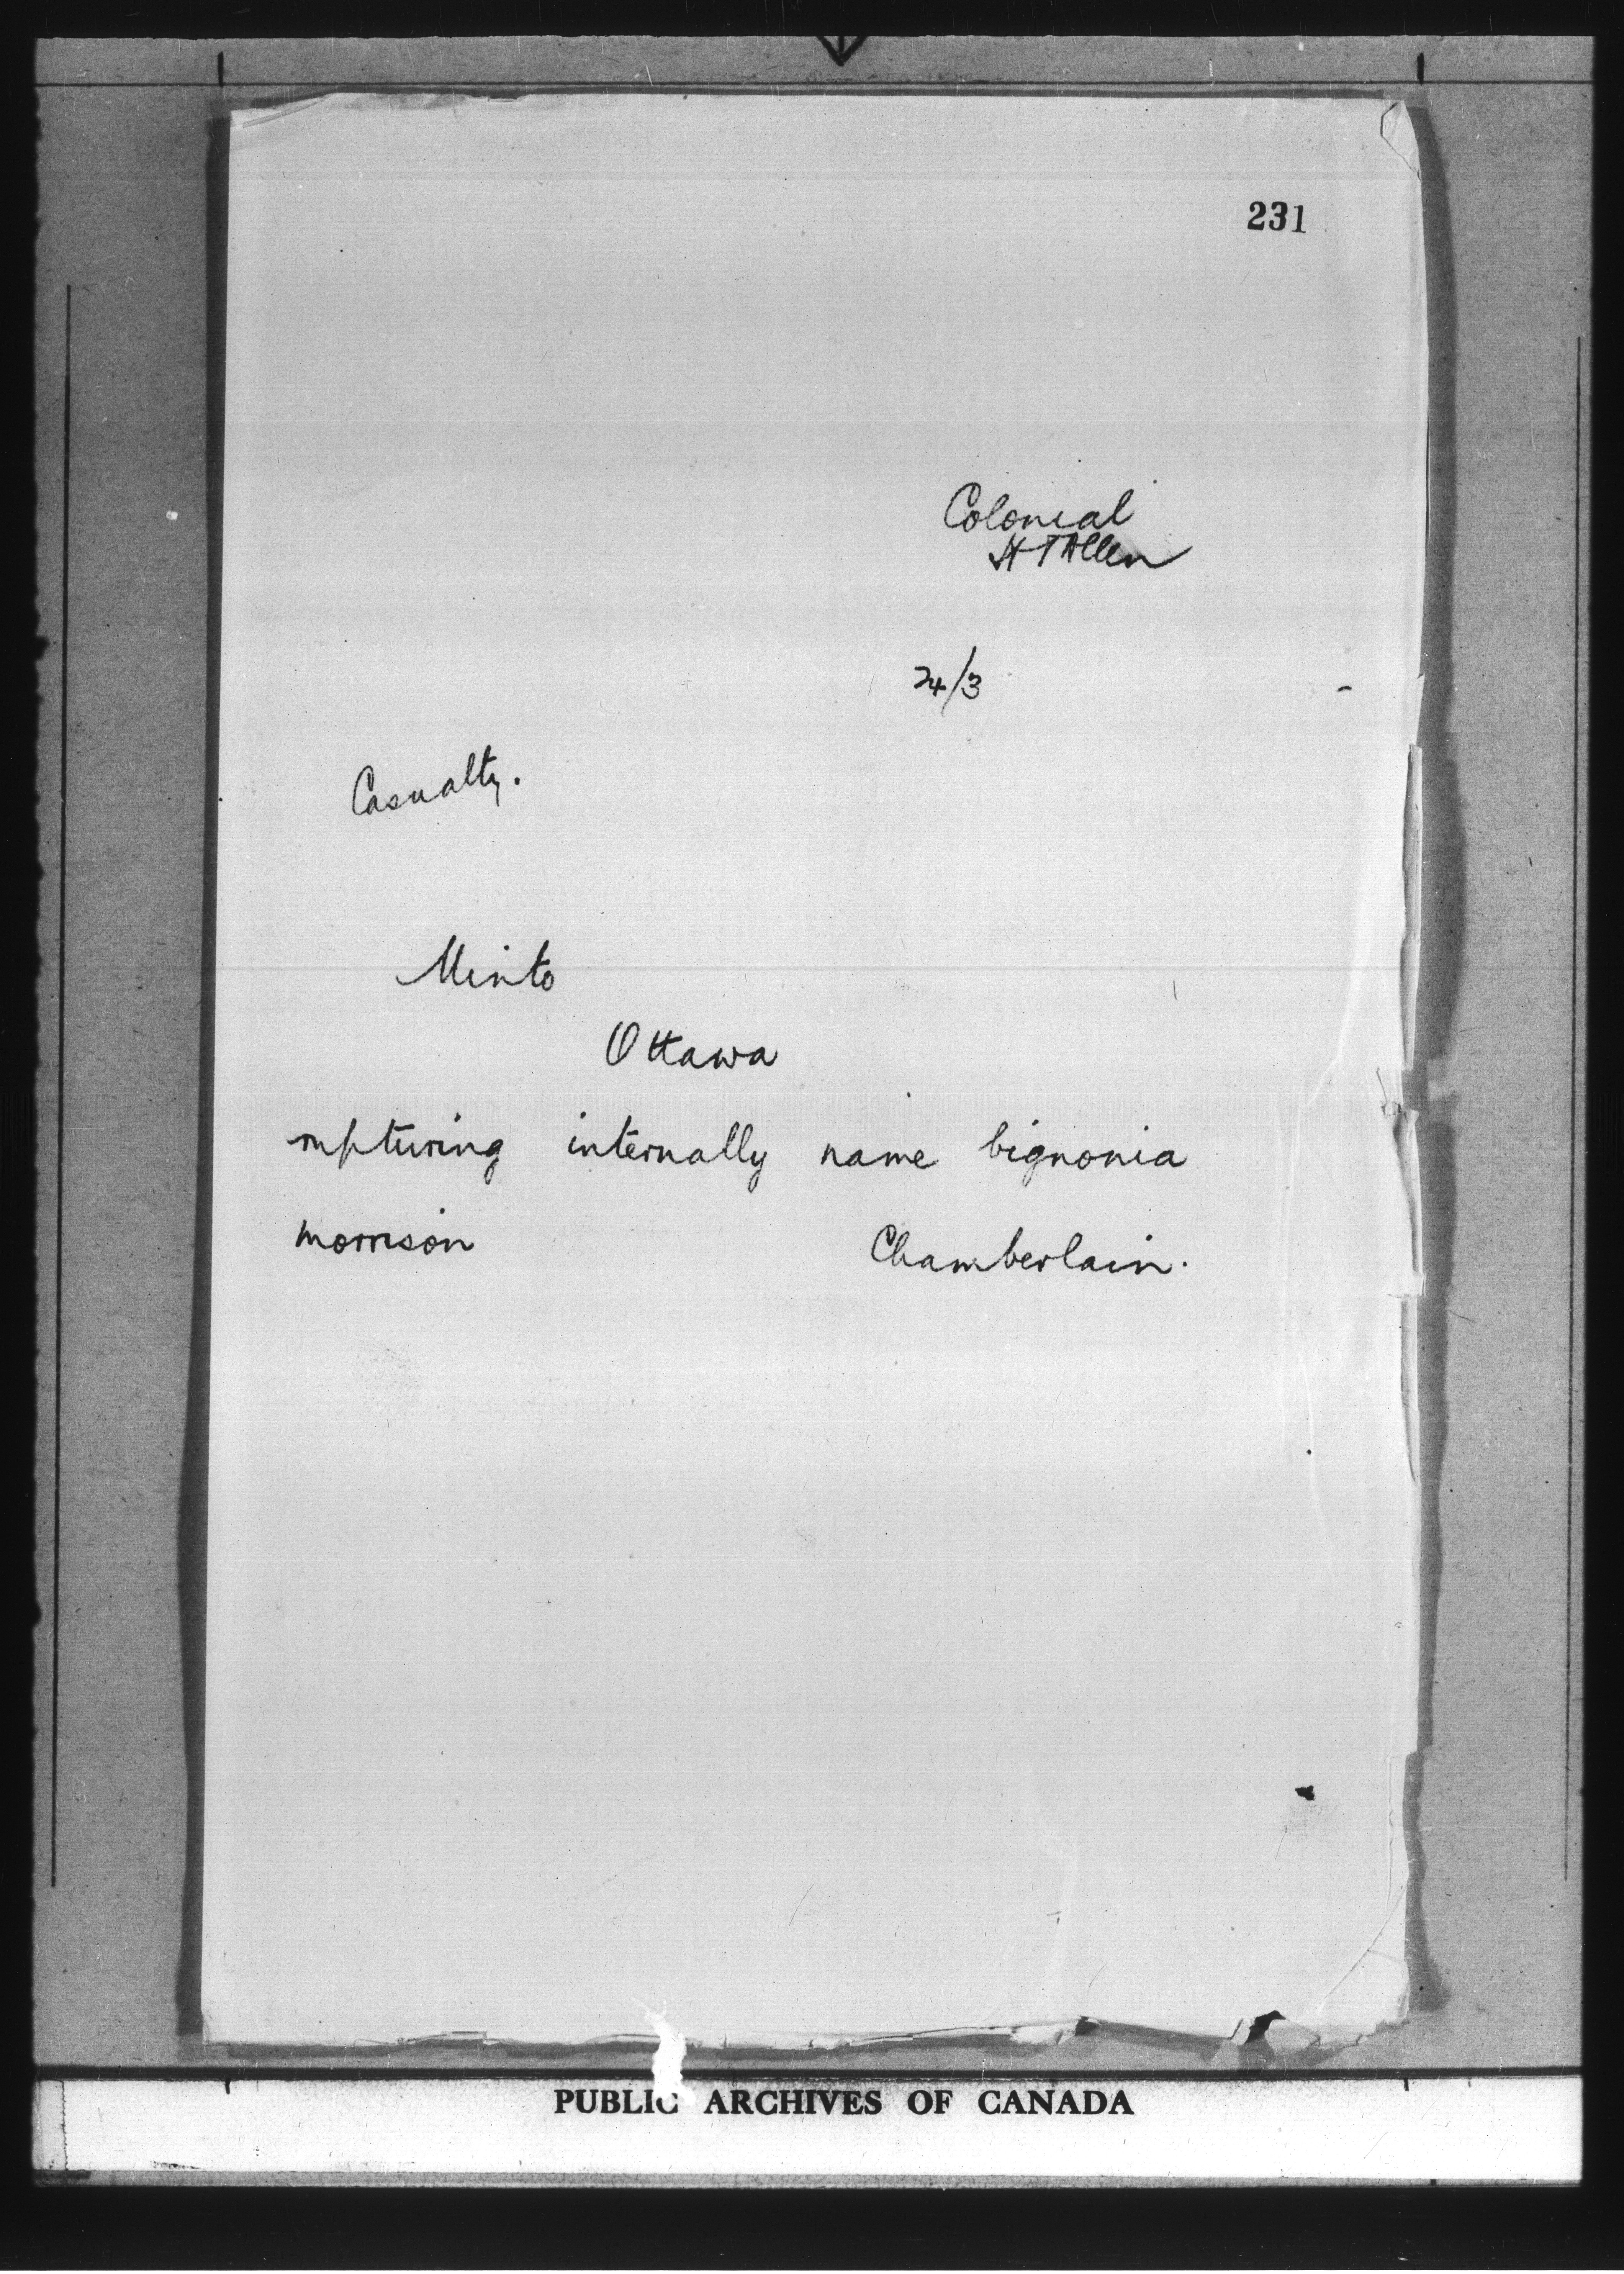 231
Colonial
H T Allen
24/3
Casualty.
Minto
Ottawa
rupturing internally name bignonia
morrison Chamberlain.
PUBLIC ARCHIVES OF CANADA